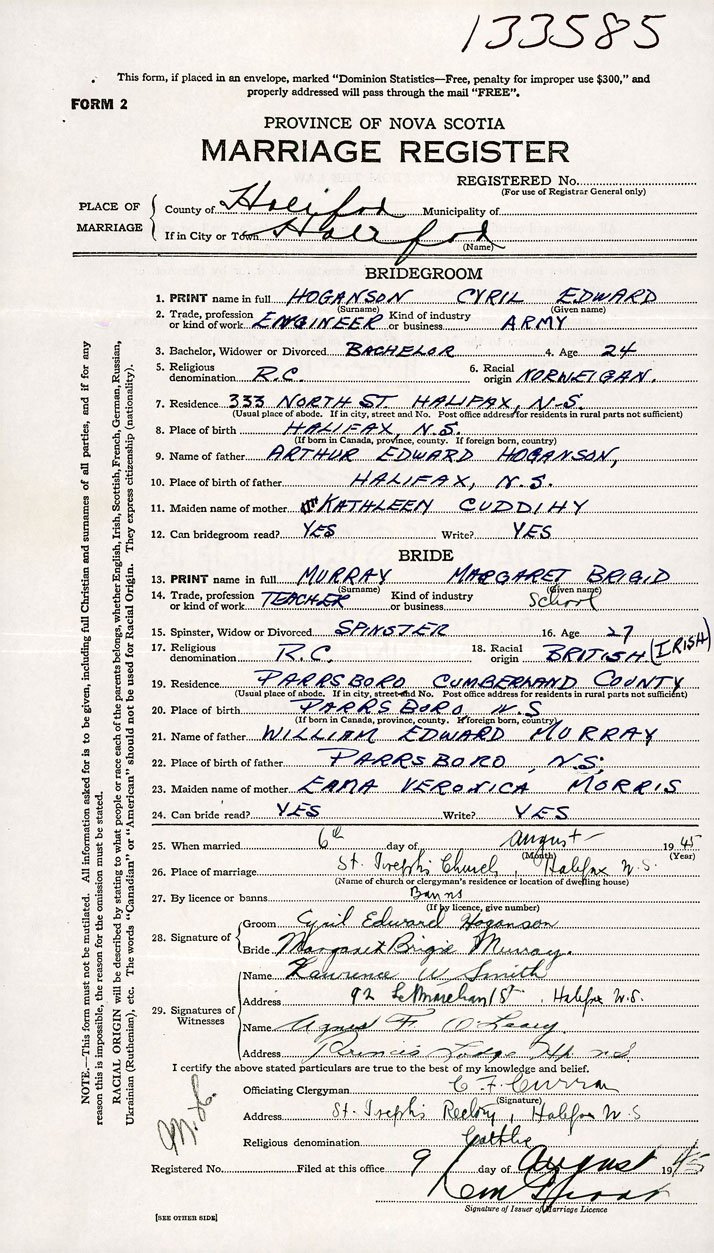 133585
This form, if placed in an envelope, marked "Dominion Statistics—Free, penalty for improper use $300," and
properly addressed will pass through the mail "FREE".
FORM 2
PROVINCE OF NOVA SCOTIA
MARRIAGE REGISTER
REGISTERED No.
(For use of Registrar General only)
PLACE OF MARRIAGE
County of Halifax Municipality of
If in City or Town Halifax
(Name)
BRIDEGROOM
1. PRINT name in full HOGANSON CYRIL EDWARD
(Surname) (Given name)
2. Trade, profession or kind of work ENGINEER Kind of industry or business ARMY
3. Bachelor, Widower or Divorced BACHELOR 4. Age 24
5. Religious denomination R.C. 6. Racial origin NORWEIGAN.
7. Residence 333 NORTH ST. HALIFAX, N.S.
(Usual place of abode. If in city, street and No. Post office address for residents in rural parts not sufficient)
8. Place of birth HALIFAX, N.S.
(If born in Canada, province, county. If foreign born, country)
9. Name of father ARTHUR EDWARD HOGANSON,
10. Place of birth of father HALIFAX, N.S.
11. Maiden name of mother KATHLEEN CUDDIHY
12. Can bridegroom read? YES Write? YES
BRIDE
13. PRINT name in full MURRAY MARGARET BRIGID
(Surname) (Given name)
14. Trade, profession or kind of work TEACHER Kind of industry or business School
15. Spinster, Widow or Divorced SPINSTER 16. Age 27
17. Religious denomination R.C. 18. Racial origin BRITISH (IRISH)
19. Residence PARRSBORO CUMBERLAND COUNTY
(Usual place of abode. If in city, street and No. Post office address for residents in rural parts not sufficient)
20. Place of birth PARRSBORO N.S
(If born in Canada, province, county. If foreign born, country)
21. Name of father WILLIAM EDWARD MURRAY
22. Place of birth of father PARRSBORO, N.S.
23. Maiden name of mother EMMA VERONICA MORRIS
24. Can bride read? YES Write? YES
25. When married 6th day of August 1945
(Month) (Year)
26. Place of marriage St. Joseph's Church, Halifax N.S.
(Name of church or clergyman's residence or location of dwelling house)
27. By licence or banns Banns
(If by licence, give number)
28. Signature of
Groom Cyril Edward Hoganson
Bride Margaret Brigid Murray.
29. Signatures of Witnesses
Name Lawrence W Smith
Address 92 LeMarchant St, Halifax N.S.
Name Agnes F. O'Leary
Address Princes Lodge Hfx N.S
I certify the above stated particulars are true to the best of my knowledge and belief.
Officiating Clergyman C. F. Curran
(Signature)
Address St. Joseph's Rectory, Halifax N.S
Religious denomination Catholic
Registered No. Filed at this office 9 day of August 1945
Signature of Issuer of Marriage Licence
[SEE OTHER SIDE]
NOTE.—This form must not be mutilated. All information asked for is to be given, including full Christian and surnames of all parties, and if for any
reason this is impossible, the reason for the omission must be stated.
RACIAL ORIGIN will be described by stating to what people or race each of the parents belongs, whether English, Irish, Scottish, French, German, Russian,
Ukrainian (Ruthenian), etc. The words "Canadian" or "American" should not be used for Racial Origin. They express citizenship (nationality).